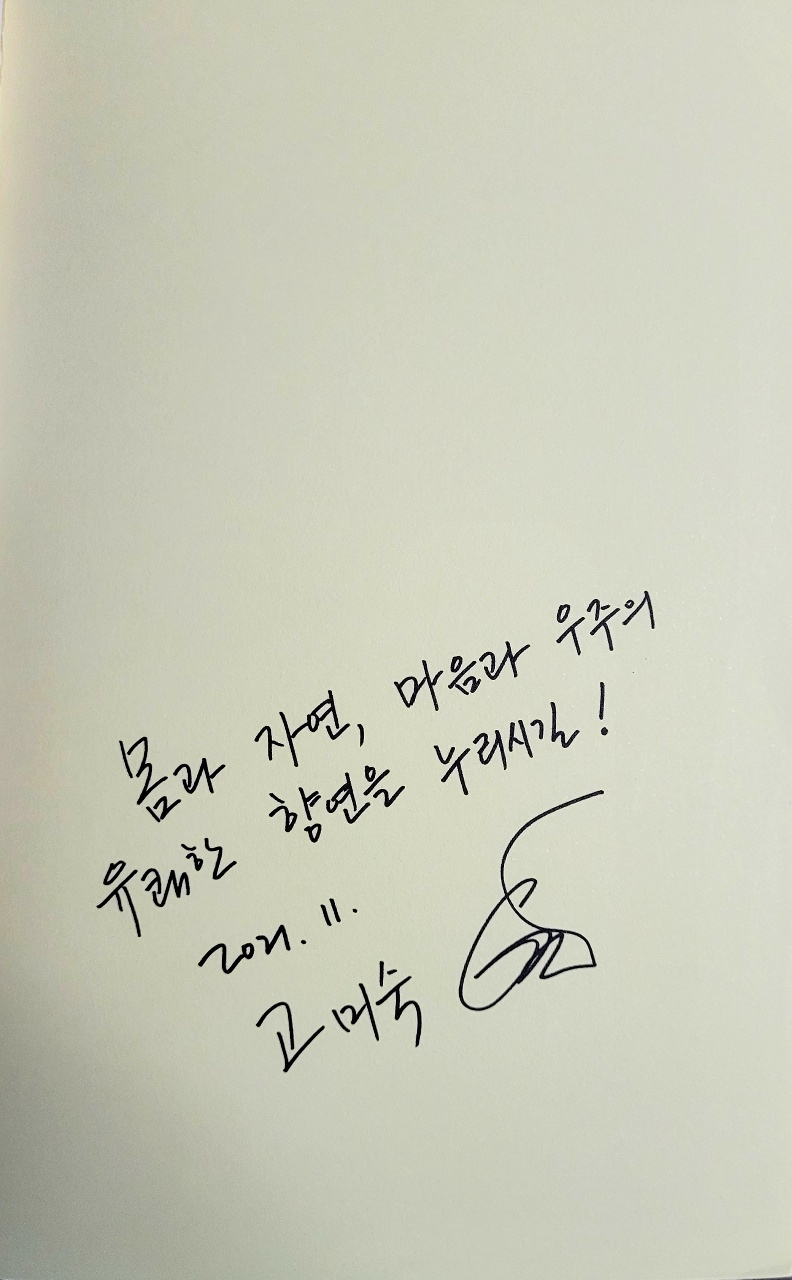 몸과 자연, 마음과 우주의
유쾌한 향연을 누리시길!
2021. 11.
고미숙